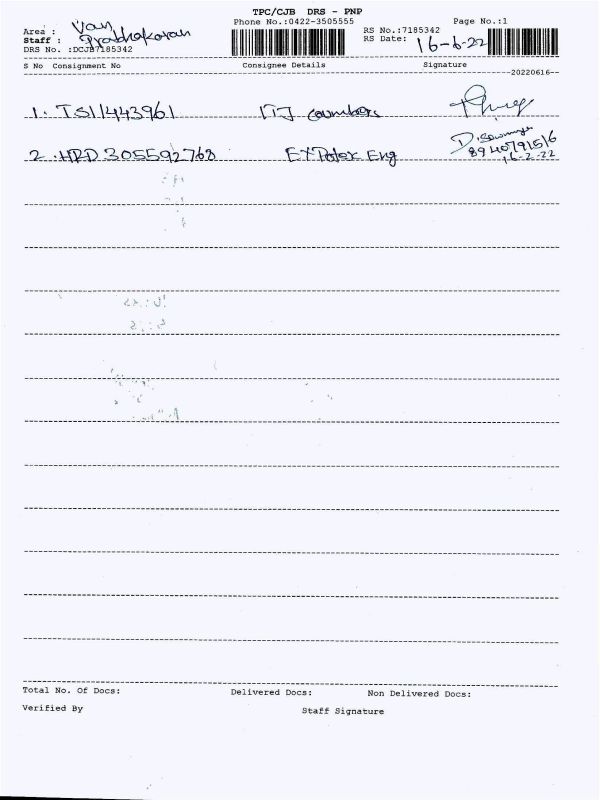 TPC/CJB DRS - PNP
Phone No.:0422-3505555 Page No.:1
Area : Van
Staff : Prabhakaran
RS No.:7185342
DRS No. :DCJB7185342
RS Date: 16-6-22
S No Consignment No Consignee Details Signature
20220616
1. TSI1443961
2. HRD 305592768 Eng
8940791516
16-2-22
Total No. Of Docs: Delivered Docs: Non Delivered Docs:
Verified By Staff Signature